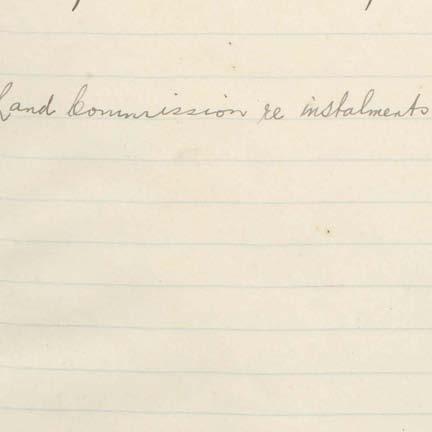 Land Commission re instalments